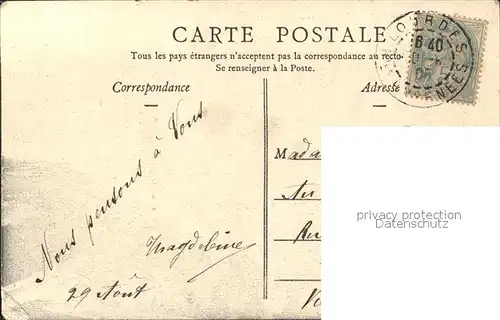 CARTE POSTALE
Tous les pays étrangers n'acceptent pas la correspondance au recto
Se renseigner à la Poste.
Correspondance
Adresse
LOURDES
6 40
PYRENEES
Nous pensons à Vous
Magdeleine
29 Août
Mada
Au
Ru
privacy protection
Datenschutz